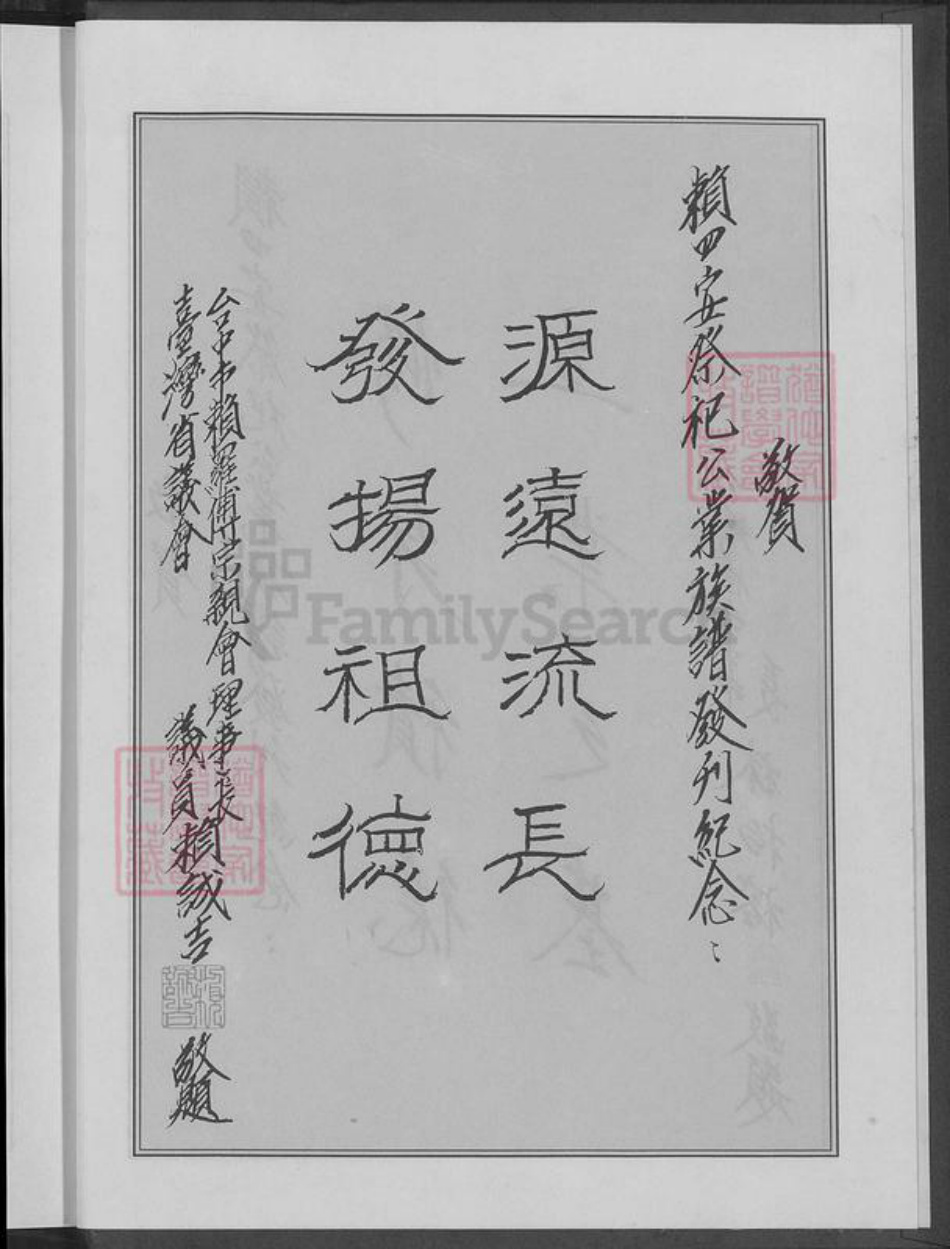 敬賀
賴四安祭祀公業族譜發刊紀念：
源遠流長
發揚祖德
台中市賴羅傅宗親會理事長
臺灣省議會 議員賴誠吉 敬題
FamilySearch